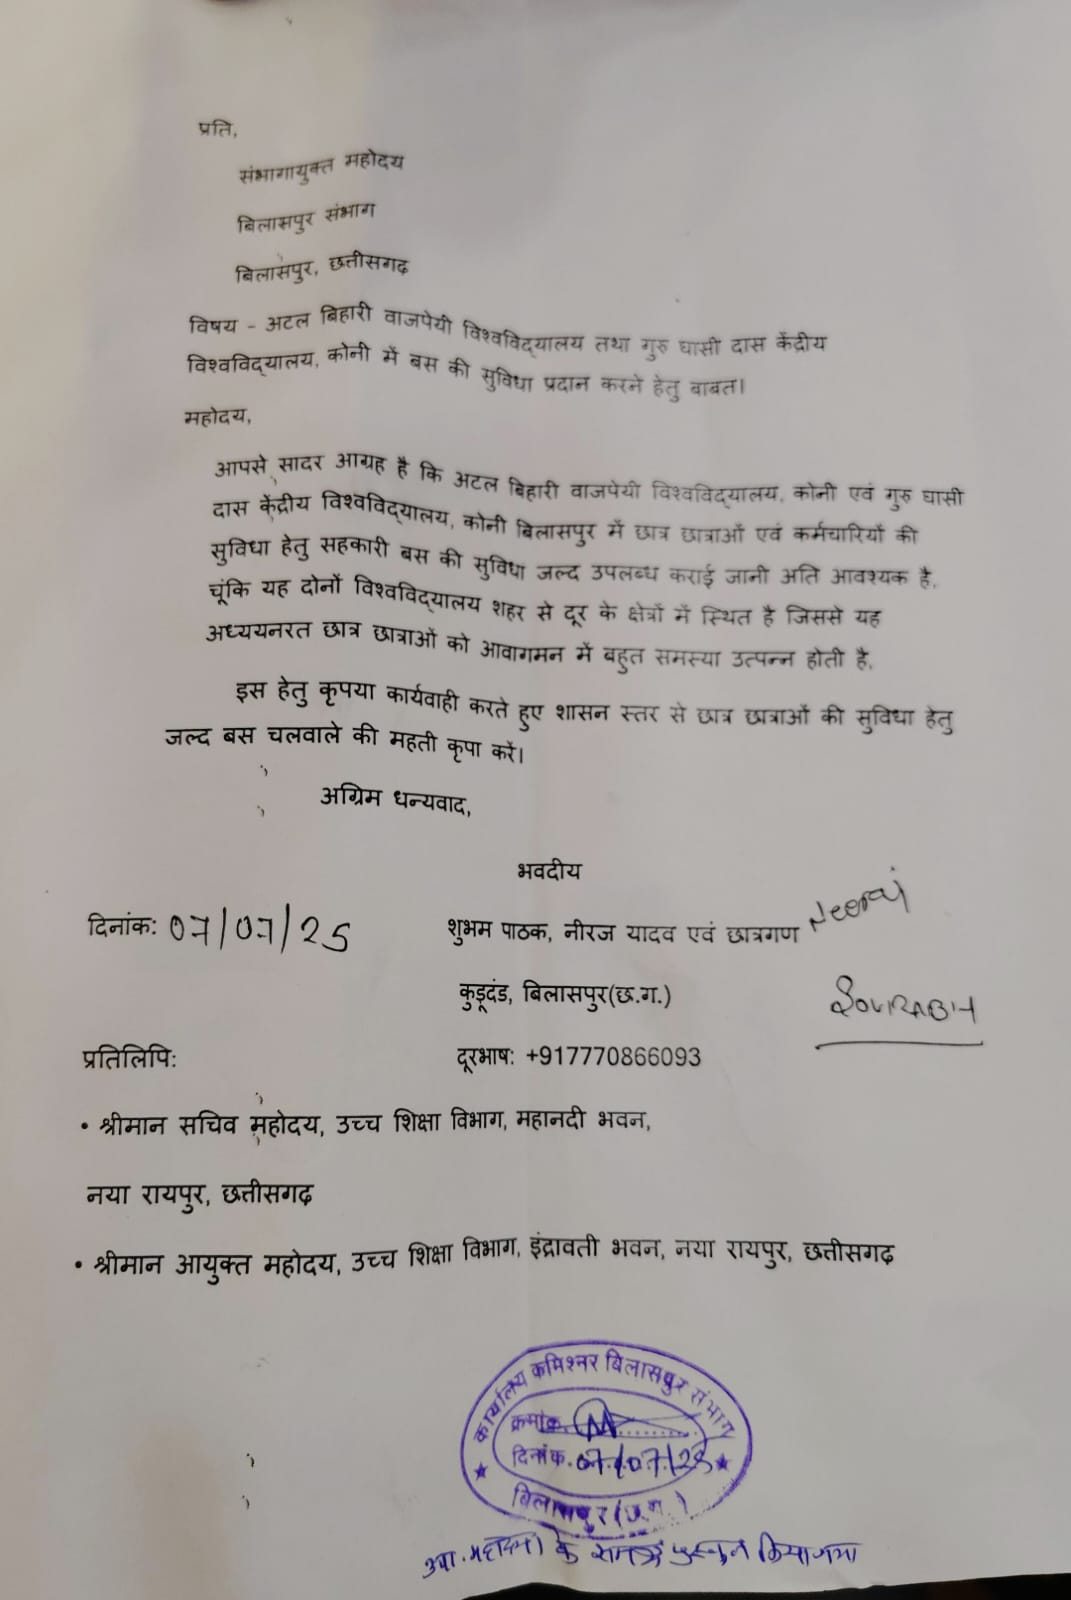 प्रति,
संभागायुक्त महोदय
बिलासपुर संभाग
बिलासपुर, छत्तीसगढ़
विषय - अटल बिहारी वाजपेयी विश्वविद्यालय तथा गुरु घासी दास केंद्रीय
विश्वविद्यालय, कोनी में बस की सुविधा प्रदान करने हेतु बाबत।
महोदय,
आपसे सादर आग्रह है कि अटल बिहारी वाजपेयी विश्वविद्यालय, कोनी एवं गुरु घासी
दास केंद्रीय विश्वविद्यालय, कोनी बिलासपुर में छात्र छात्राओं एवं कर्मचारियों की
सुविधा हेतु सहकारी बस की सुविधा जल्द उपलब्ध कराई जानी अति आवश्यक है,
चूंकि यह दोनों विश्वविद्यालय शहर से दूर के क्षेत्रों में स्थित है जिससे यह
अध्ययनरत छात्र छात्राओं को आवागमन में बहुत समस्या उत्पन्न होती है,
इस हेतु कृपया कार्यवाही करते हुए शासन स्तर से छात्र छात्राओं की सुविधा हेतु
जल्द बस चलवाले की महती कृपा करें।
अग्रिम धन्यवाद,
भवदीय
दिनांक: 07/07/25
शुभम पाठक, नीरज यादव एवं छात्रगण Neeraj
कुडूदंड, बिलासपुर(छ.ग.)
SOURABH
प्रतिलिपि:
दूरभाष: +917770866093
• श्रीमान सचिव महोदय, उच्च शिक्षा विभाग, महानदी भवन,
नया रायपुर, छत्तीसगढ़
• श्रीमान आयुक्त महोदय, उच्च शिक्षा विभाग, इंद्रावती भवन, नया रायपुर, छत्तीसगढ़
कार्यालय कमिश्नर बिलासपुर संभाग
क्रमांक
दिनांक. 07/07/25
बिलासपुर (छ.ग.)
के समक्ष प्रस्तुत किया गया